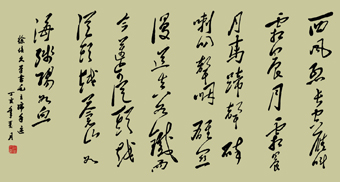 西风烈长空雁叫
霜晨月霜晨
月马蹄声碎
喇叭声咽雄关
漫道真如铁而
今迈步从头越
从头越苍山如
海残阳如血